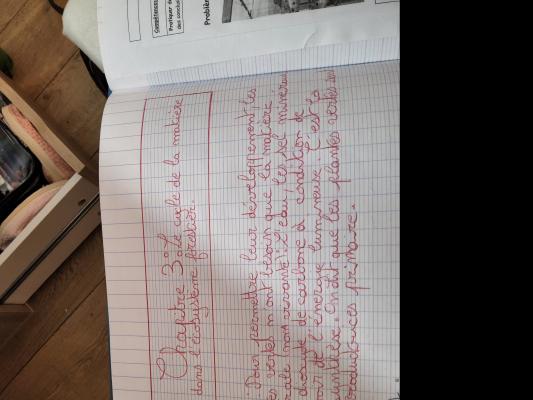 Compétences
Pratiquer
des
Problè
Chapitre 3: Le cycle de la matière
dans l'écosystème forestier.
Pour permettre leur développement, les
vertes n'ont besoin que la matière
rale (non vivante): l'eau, les sel minéraux
dioxyde de carbone à condition de
voir de l'énergie lumineuse. C'est la
On dit que les plantes vertes
productrices primaire.